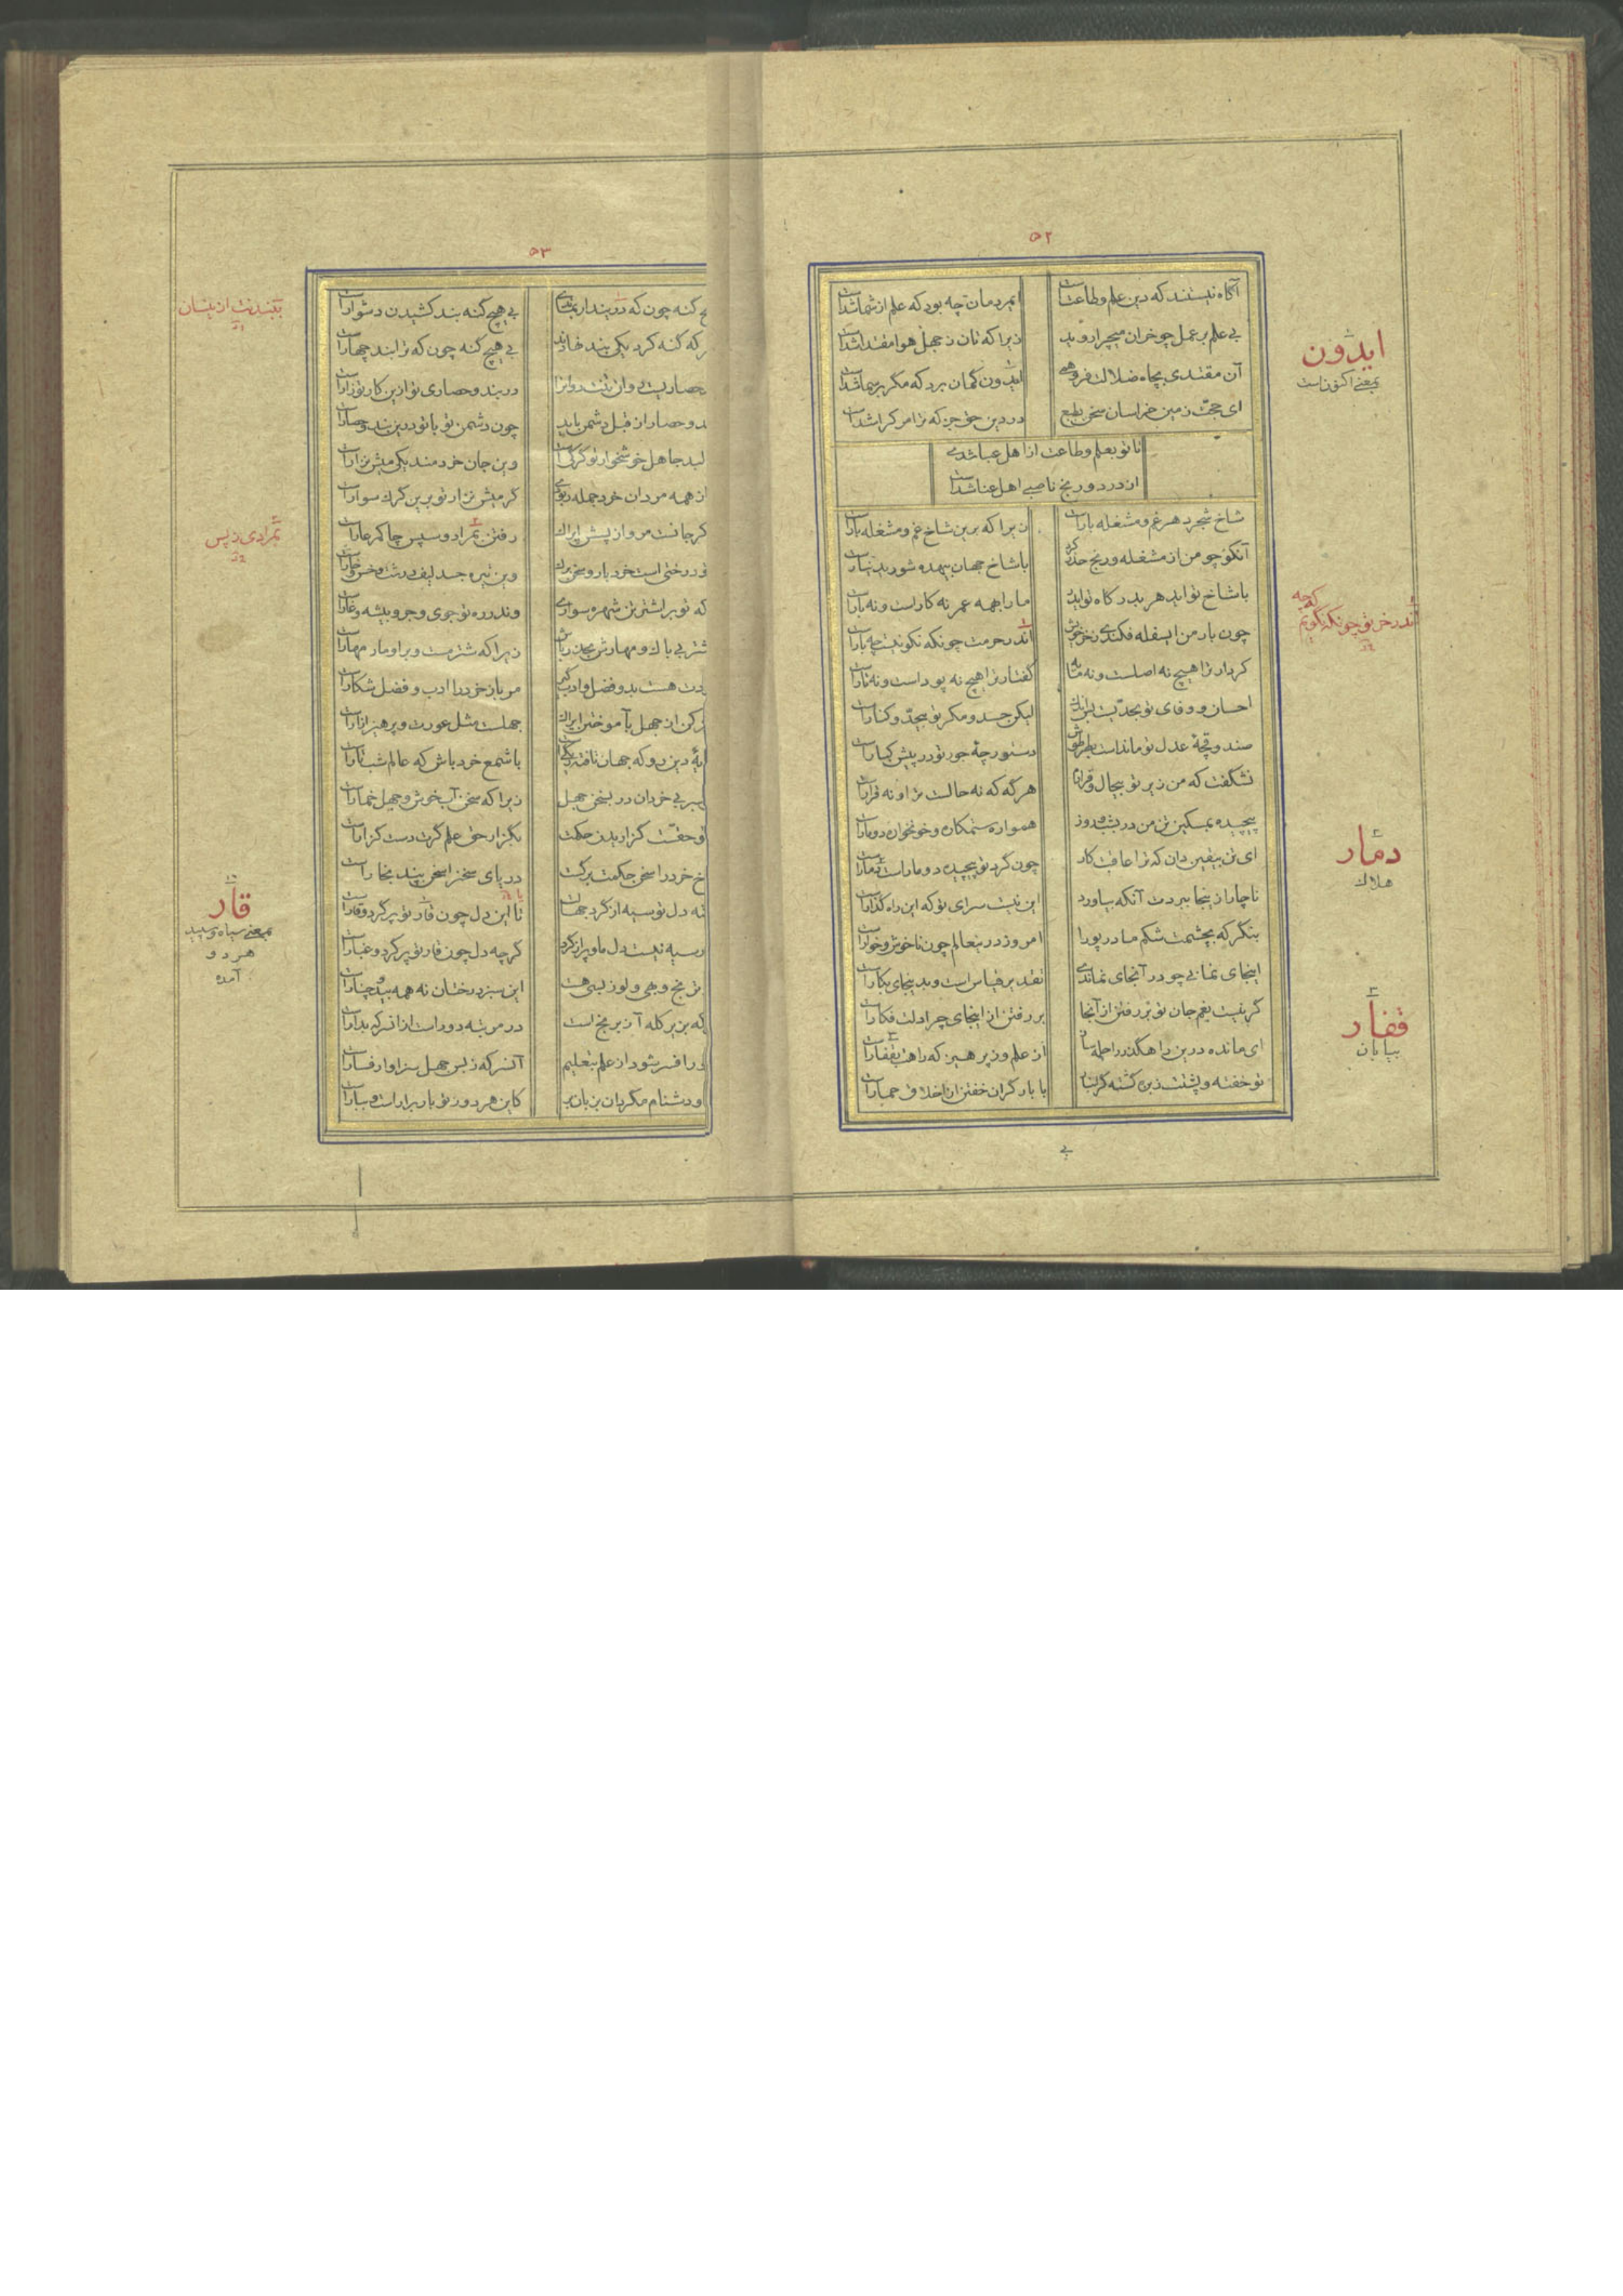 ۵۲
آگاه نیستند که دین علم و طاعتست
ایمردمان چه بود که علم از شما شداست
بی علم بر عمل چو خران میچرا روید
زیرا که تان ز جهل هوا مقتدا شداست
آن مقتدی بچاه ضلالت فرو
ایدون گمان برد که مگر بر سما شداست
ای حجت زمین خراسان سخن
در دین حق جز که ترا شداست
تا تو بعلم و طاعت از اهل عبا شدی
از درد و رنج ناصبی اهل عنا شداست
شاخ شجر دهر غم و مشغله بار است
زیرا که برین شاخ غم و مشغله بار است
آنکو چو من از مشغله و رنج حذر کرد
با شاخ جهان بیهده شورید نیارست
با شاخ تو اید هر بدرگاه تو اید
ما را همه عمر نه کار است و نه بار است
چون بار من ای سفله فکندی ز خر خویش
اندر خر من چونکه نگویی که چه بار است
کردار ترا هیچ نه اصلست و نه مایه
گفتار ترا هیچ نه پود است و نه تار است
احسان و وفای تو بحدیست
لیکن حسد و مکر تو بیحد و کنار است
صندوقچهٔ عدل تو مانداست بطرطوس
دستورچهٔ جور تو در پیش کنار است
نشگفت که من زیر تو بیحال و قرارم
هرگه که نه حالست ترا و نه قرار است
پیچیده بمسکین تن من در بشب و روز
همواره ستمکاره و خونخواره دو مار است
ای تن بیقین دان که ترا عاقبت کار
چون گرد تو پیچیده دو مار است دمار است
ناچار از ینجا ببردت آنکه بیاورد
این نیست سرای تو که این راه گذار است
بنگر که بچشمت شکم مادر پورا
امروز درینعالم چون ناخوش و خوار است
اینجای نمانی چو در آنجای نماندی
نقد بر قیاس است و بدینجای بکار است
گر نیست بغم جان تو بر رفتن از آنجا
بر رفتن از اینجای چرا دلت فکار است
ای مانده درین راهگذر راحله‌ای ساز
از علم و ز پرهیز که راهت بقفار است
تو خفته و پشتت ز بزه گشته گرانبار
با بار گران خفتن از اخلاق حمار است
بی
ایدون
بمعنی اکنون است
اندر خر تو چونکه نگویم که چه
دمار
هلاک
قفار
بیابان
۵۳
گنه چون که در بند
بی هیچ گنه بند کشیدن دشوار است
که گنه کرد یکی بند نهادند
بی هیچ گنه چون که ترا بند چهار است
حصاریست و
در بند و حصاری تو ازین کار تو زار است
بند و حصار از قبل دشمن باید
چون دشمن تو با تو در بند و حصار است
جاهل خونخوار تو گرگی است
وین جان خردمند یکی میش نزار است
از همه مردان خرد جمله ربودی
گر میش نزار تو برین گرگ سوار است
گر جانت مرو از پیش ایراک
رفتن بمراد و سپس چاکر عار است
درختی است خرد بار و سخن برگ
وین تیره جسد لیف درشت و خس و خار است
که تو بر اشتر تن شهره سواری
وندر ره تو جوی و جر و بیشه و غار است
شتر بی باک و مهارش
زیرا که شتر مست و برا و مار مهار است
هست بدو فضل و ادب گیر
مر باز خرد را ادب و فضل شکار است
کن از جهل بآموختن ایراک
جهلت مثل عورت و پرهیز ازار است
دین رو که جهان تافته
با شمع خرد باش که عالم شب تار است
بی خردان در سخن جهل
زیرا که سخن آب خوش و جهل خمار است
حقت گزارید حکمت
بگزار حق علم گرت دست گزار است
خرد را سخن حکمت برگست
دریای سخنرا سخن پند بخار است
دل تو سیه از گرد جهان است
تا این دل چون قار تو پر گرد و قار است
سیه نیست دل ما و پر از گرد
گرچه دل چون قار تو پر گرد و غبار است
ترنج و بهی و لوز بسی هست
این سبز درختان نه همه بید و چنار است
که بزیر کله آز بر مخ است
در مرتبه دور است از انسر که بدار است
افسر شود از علم بتعلیم
آنسر که ز بس جهل سزاوار فسار است
دشنام مگردان بزبان بر
کاین هر دو ز تو بار برار است و بیار است
بتبندنت از نسان
بمرادی ز پس
قار
بمعنی سیاه و سپید
هر دو
آمده